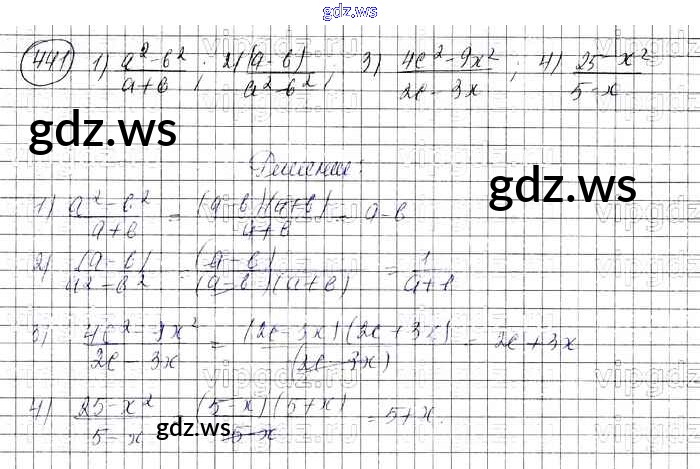 gdz.ws
441 1) a²-b²/a+b; 2) (a-b)/a²-b²; 3) 4c²-9x²/2c-3x; 4) 25-x²/5-x
gdz.ws
Решение:
gdz.ws
1) a²-b²/a+b = (a-b)(a+b)/a+b = a-b
2) (a-b)/a²-b² = (a-b)/(a-b)(a+b) = 1/a+b
3) 4c²-9x²/2c-3x = (2c-3x)(2c+3x)/(2c-3x) = 2c+3x
4) 25-x²/5-x = (5-x)(5+x)/5-x = 5+x.
gdz.ws